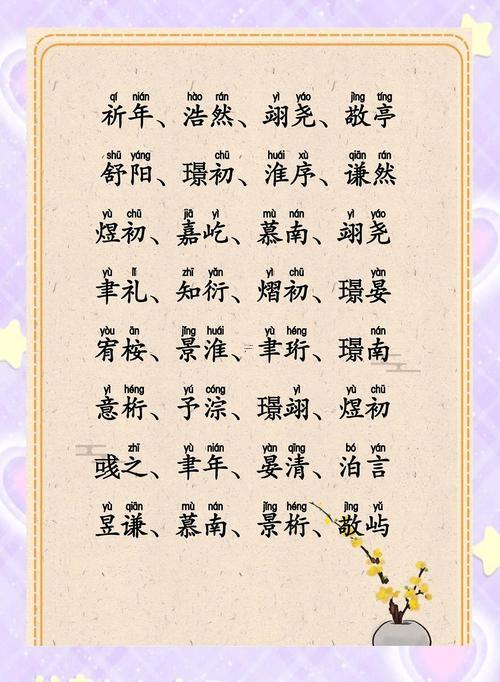 qí nián hào rán yì yáo jìng tíng
祈年、浩然、翊尧、敬亭
shū yáng chū huái xù qiān rán
舒阳、璟初、淮序、谦然
yù chū jiā yì mù nán yì yáo
煜初、嘉屹、慕南、翊尧
yù lǐ zhī yǎn yì chū yàn
聿礼、知衍、熠初、璟晏
yòu ān jǐng huái yù héng nán
宥桉、景淮、聿珩、璟南
yì héng yú cóng yì yù chū
意桁、予淙、璟翊、煜初
zhī yù nián yàn qīng bó yán
彧之、聿年、晏清、泊言
yù qiān mù nán jǐng héng jìng yǔ
昱谦、慕南、景桁、敬屿